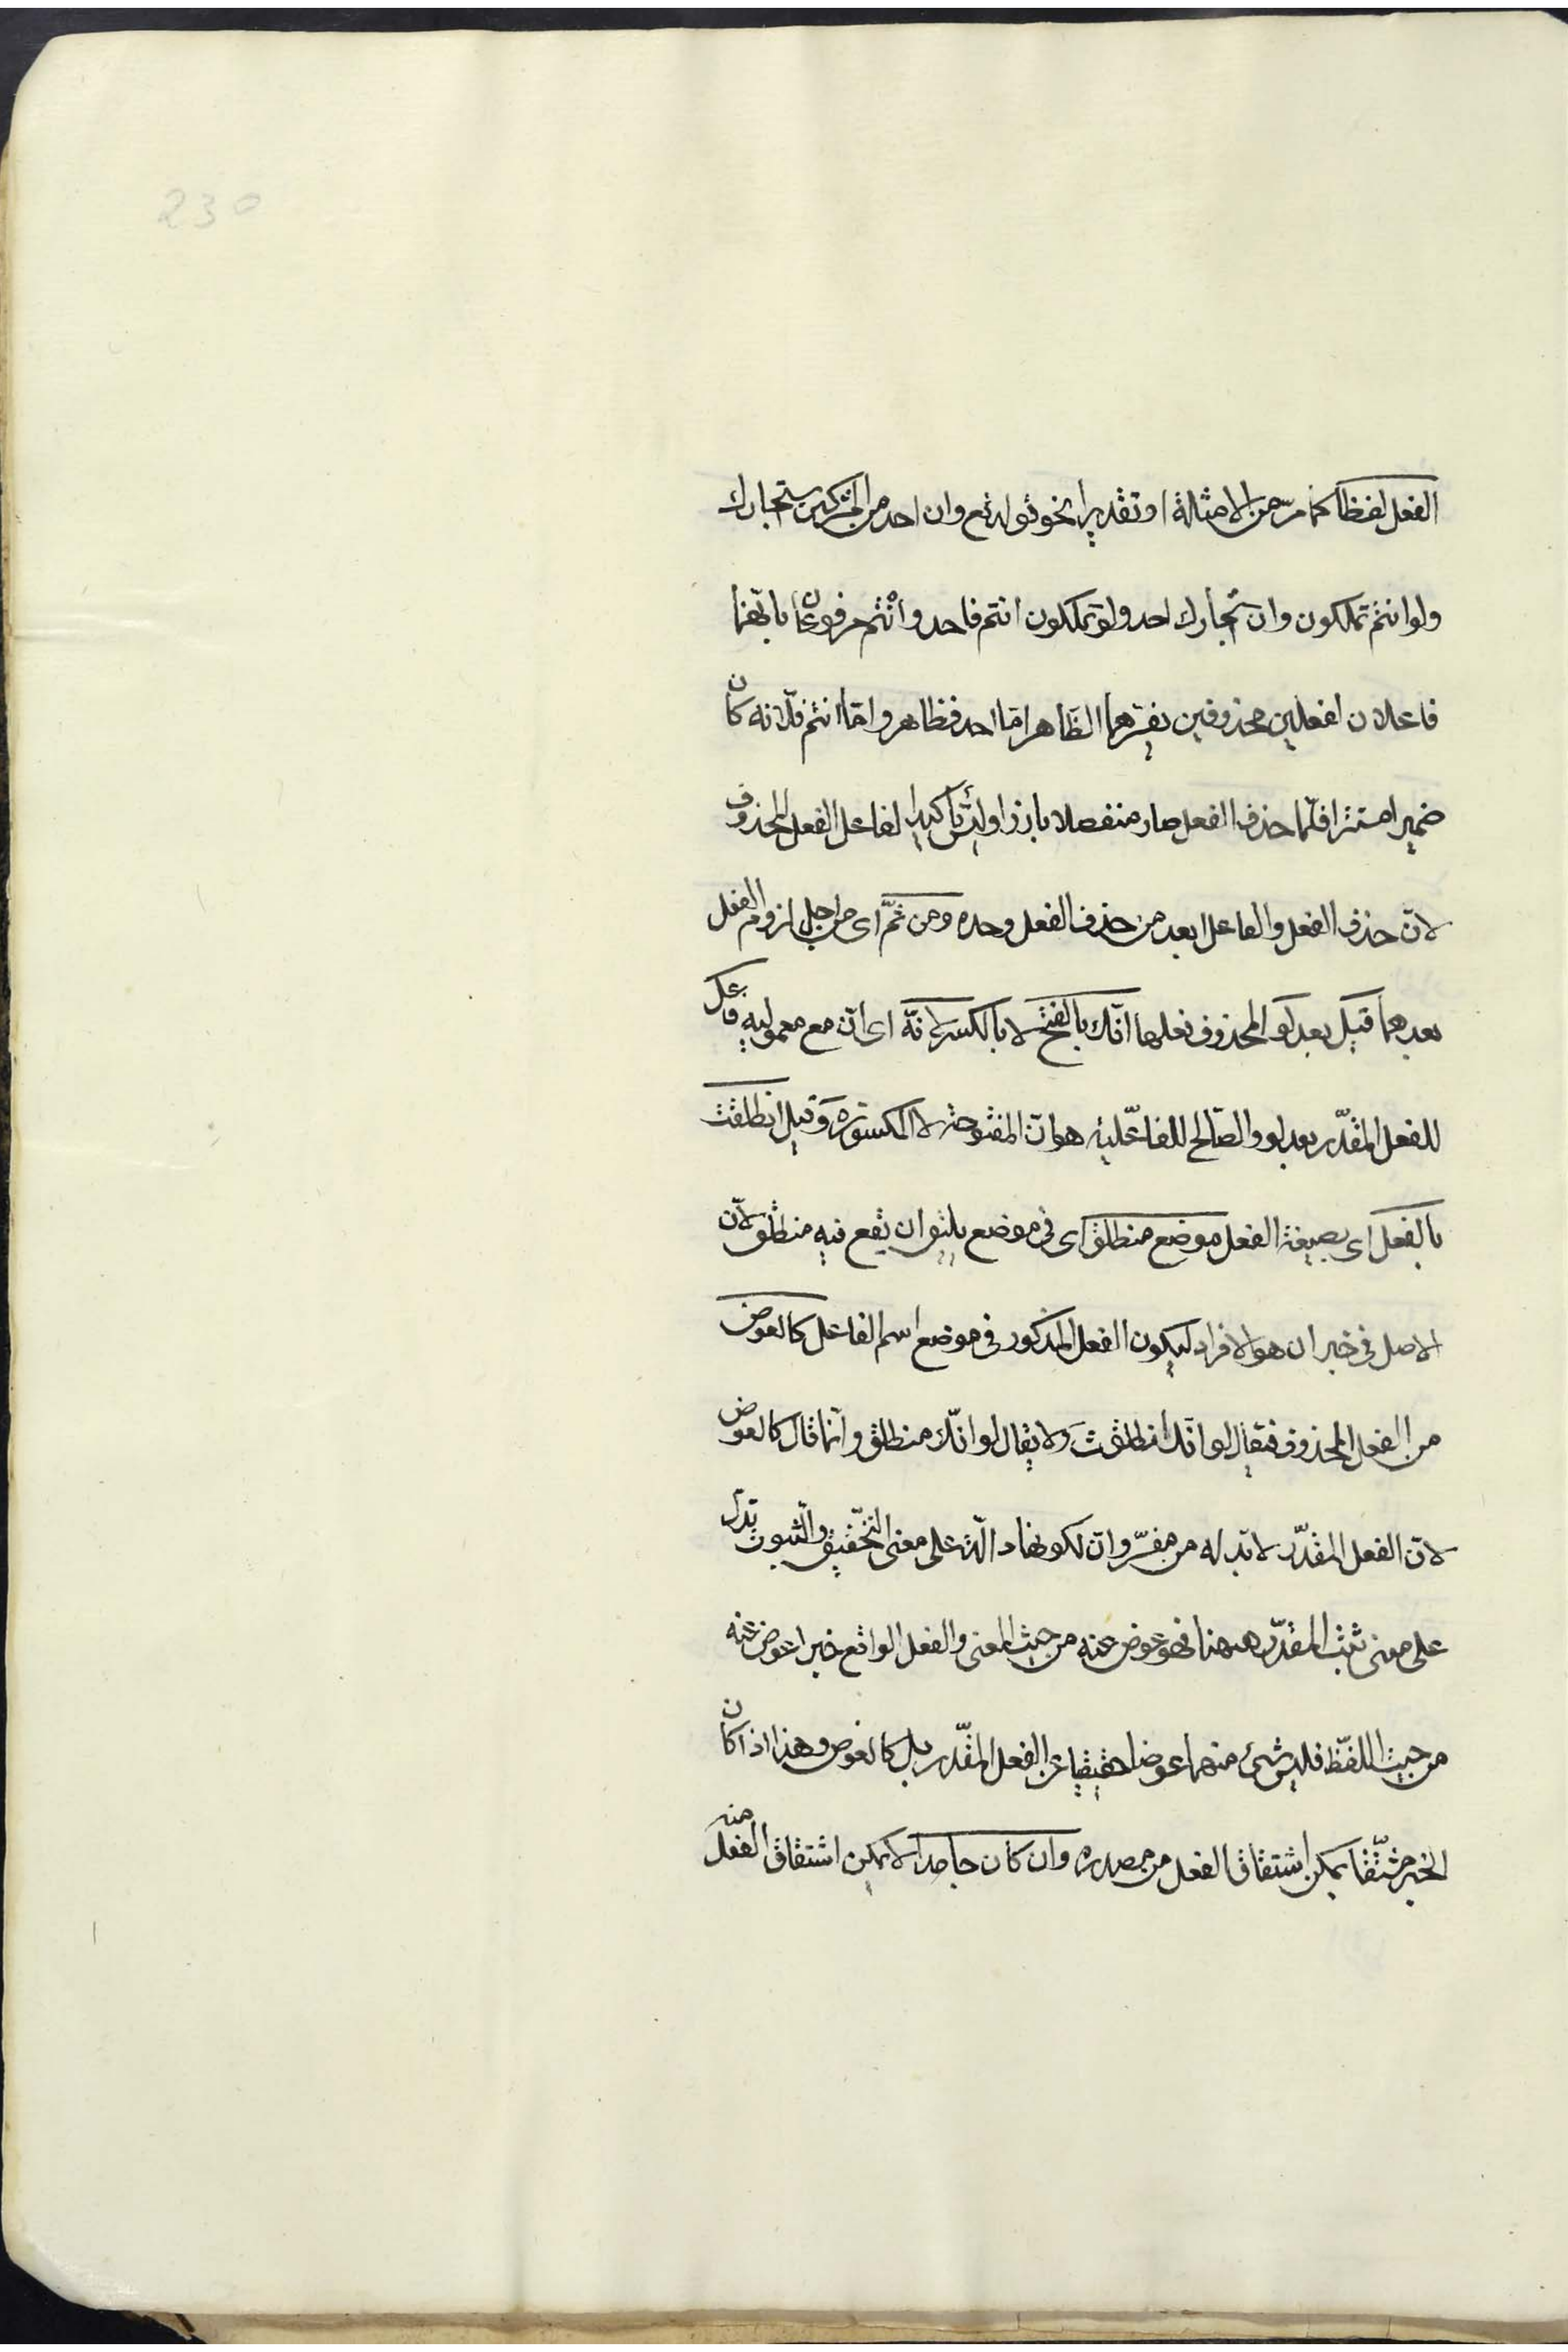 230
الفعل لفظا كما مرّ من الامثلة او تقديرا نحو قوله تع وان احد من المشركين استجارك
ولو انتم تملكون وان استجارك احد ولو تملكون انتم فاحد وانتم مرفوعان بانهما
فاعلان لفعلين محذوفين يفسّرهما الظاهر امّا احد فظاهر وامّا انتم فلانه كان
ضميرا مستترا فلمّا حذف الفعل صار منفصلا بارزا وليس تأكيدا لفاعل الفعل المحذوف
لانّ حذف الفعل والفاعل ابعد من حذف الفعل وحده ومن ثمّ اى من اجل لزوم الفعل
بعدهما قيل بعد لو المحذوف فعلها انّك بالفتح لا بالكسر لانّه اى انّ مع معموليه فاعل
للفعل المقدّر بعد لو والصّالح للفاعليّة هو انّ المفتوحة لا المكسورة وقيل انطلقت
بالفعل اى بصيغة الفعل موضع منطلق اى فى موضع يليق ان يقع فيه منطلق لانّ
الاصل فى خبر ان هو الافراد ليكون الفعل المذكور فى موضع اسم الفاعل كالعوض
من الفعل المحذوف فيقال لو انّك انطلقت ولا يقال لو انّك منطلق وانّما قال كالعوض
لانّ الفعل المقدّر لا بدّ له من مفسّر وانّ لكونها دالّة على معنى التّحقيق والثّبوت تدلّ
على معنى ثبت المقدّر ههنا فهو عوض عنه من حيث المعنى والفعل الواقع خبرا عوض عنه
من حيث اللفظ فليس شئ منهما عوضا حقيقيا عن الفعل المقدّر بل كالعوض وهذا اذا كان
الخبر مشتّقا يمكن اشتقاق الفعل من مصدره وان كان جامدا لا يمكن اشتقاق الفعل منه